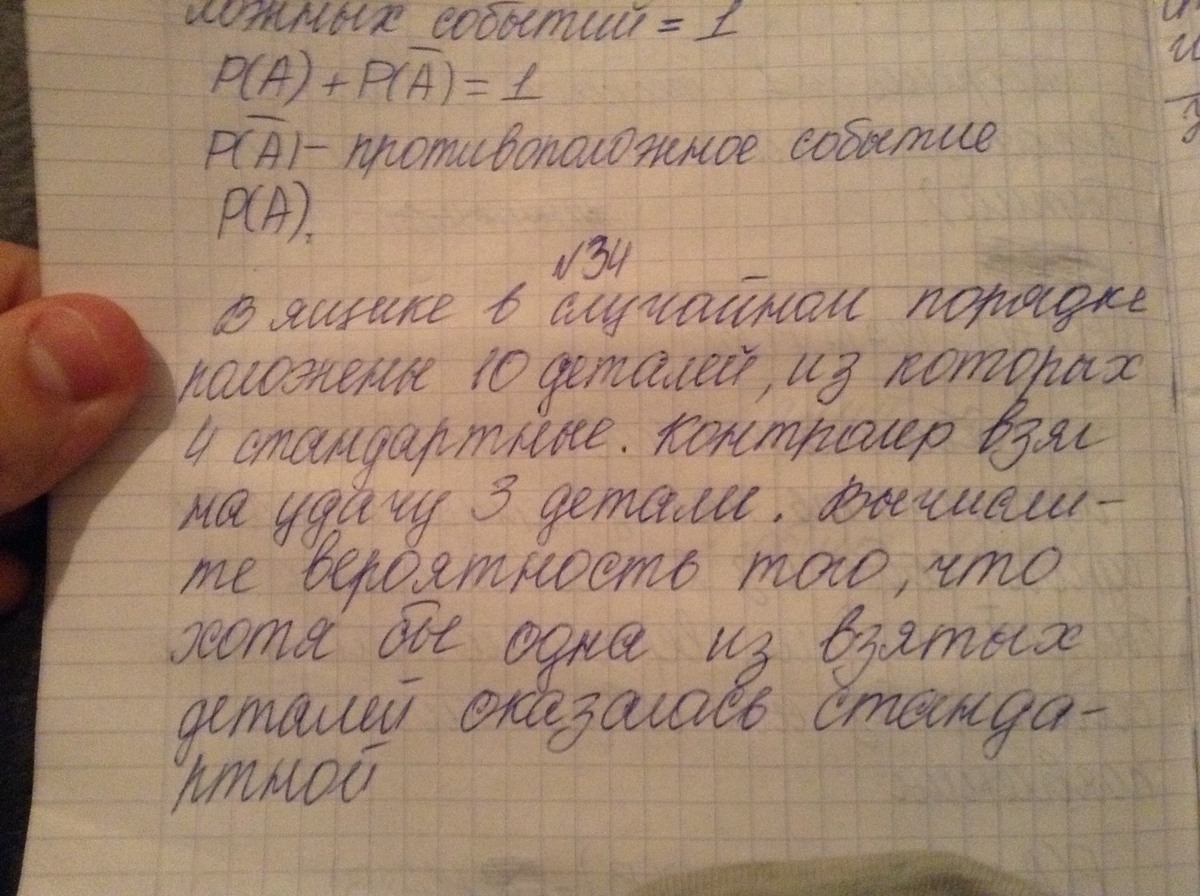 ложных событий = 1
P(A) + P(Ā) = 1
P(Ā) – противоположное событие
P(A).
№34
В ящике в случайном порядке
положены 10 деталей, из которых
4 стандартные. Контролер взял
на удачу 3 детали. Вычисли-
те вероятность того, что
хотя бы одна из взятых
деталей оказалась станда-
ртной